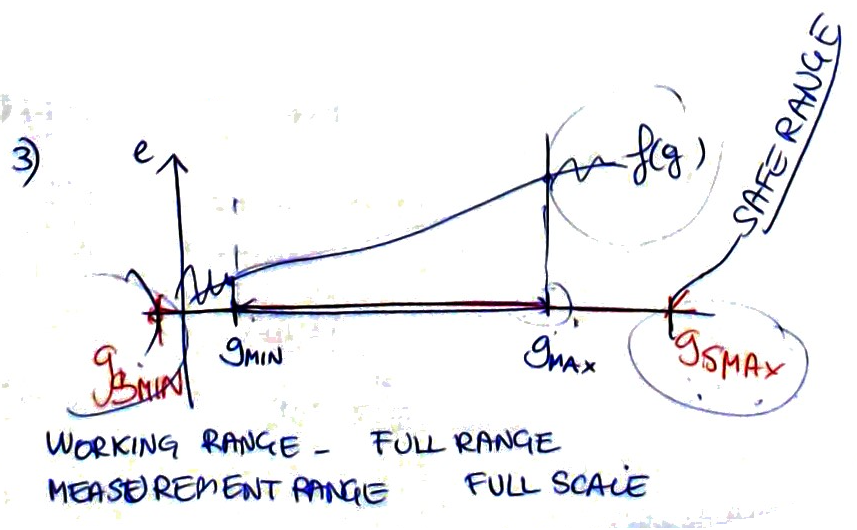 3)
e
f(g)
SAFE RANGE
gSMIN
gMIN
gMAX
gSMAX
WORKING RANGE - FULL RANGE
MEASUREMENT RANGE FULL SCALE